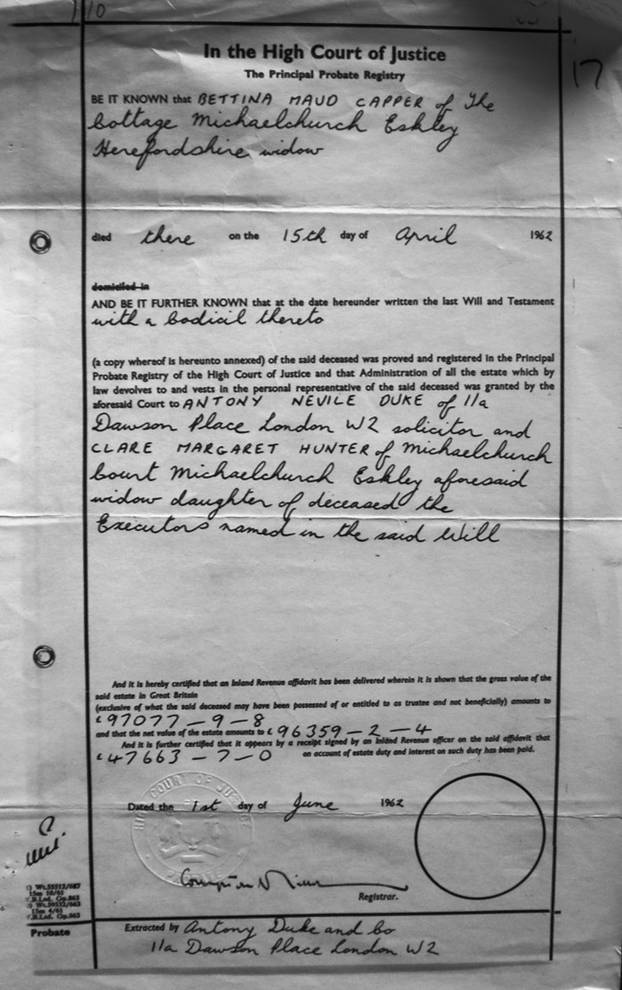 110
17
In the High Court of Justice
The Principal Probate Registry
BE IT KNOWN that BETTINA MAUD CAPPER of The
Cottage Michaelchurch Eskley
Herefordshire widow
died there on the 15th day of April 1962
domiciled in
AND BE IT FURTHER KNOWN that at the date hereunder written the last Will and Testament
with a Codicil thereto
(a copy whereof is hereunto annexed) of the said deceased was proved and registered in the Principal
Probate Registry of the High Court of Justice and that Administration of all the estate which by
law devolves to and vests in the personal representative of the said deceased was granted by the
aforesaid Court to ANTONY NEVILE DUKE of 11a
Dawson Place London W2 solicitor and
CLARE MARGARET HUNTER of Michaelchurch
Court Michaelchurch Eskley aforesaid
widow daughter of deceased the
Executors named in the said Will
And it is hereby certified that an Inland Revenue affidavit has been delivered wherein it is shown that the gross value of the
said estate in Great Britain
(exclusive of what the said deceased may have been possessed of or entitled to as trustee and not beneficially) amounts to
£ 97077-9-8
and that the net value of the estate amounts to £ 96359-2-4
And it is further certified that it appears by a receipt signed by an Inland Revenue officer on the said affidavit that
£ 47663-7-0 on account of estate duty and interest on such duty has been paid.
Dated the 1st day of June 1962
HIGH COURT OF JUSTICE
Registrar.
Probate
Extracted by Antony Duke and Co
11a Dawson Place London W2